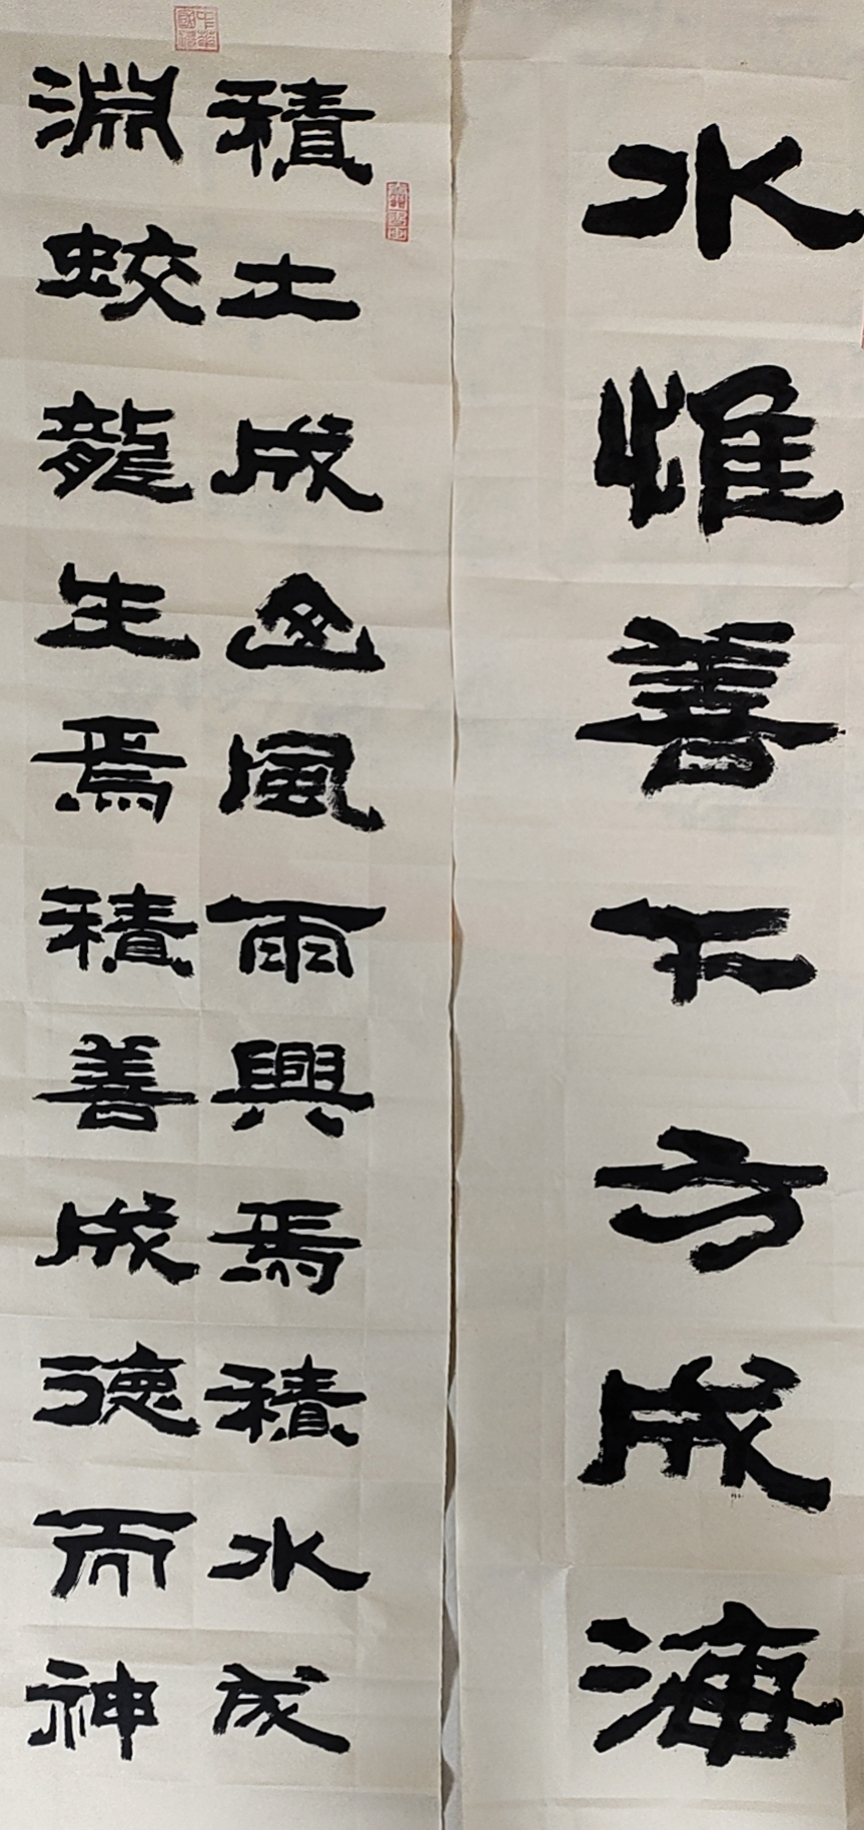 水惟善下方成海
積土成山風雨興焉積水成
淵蛟龍生焉積善成德而神